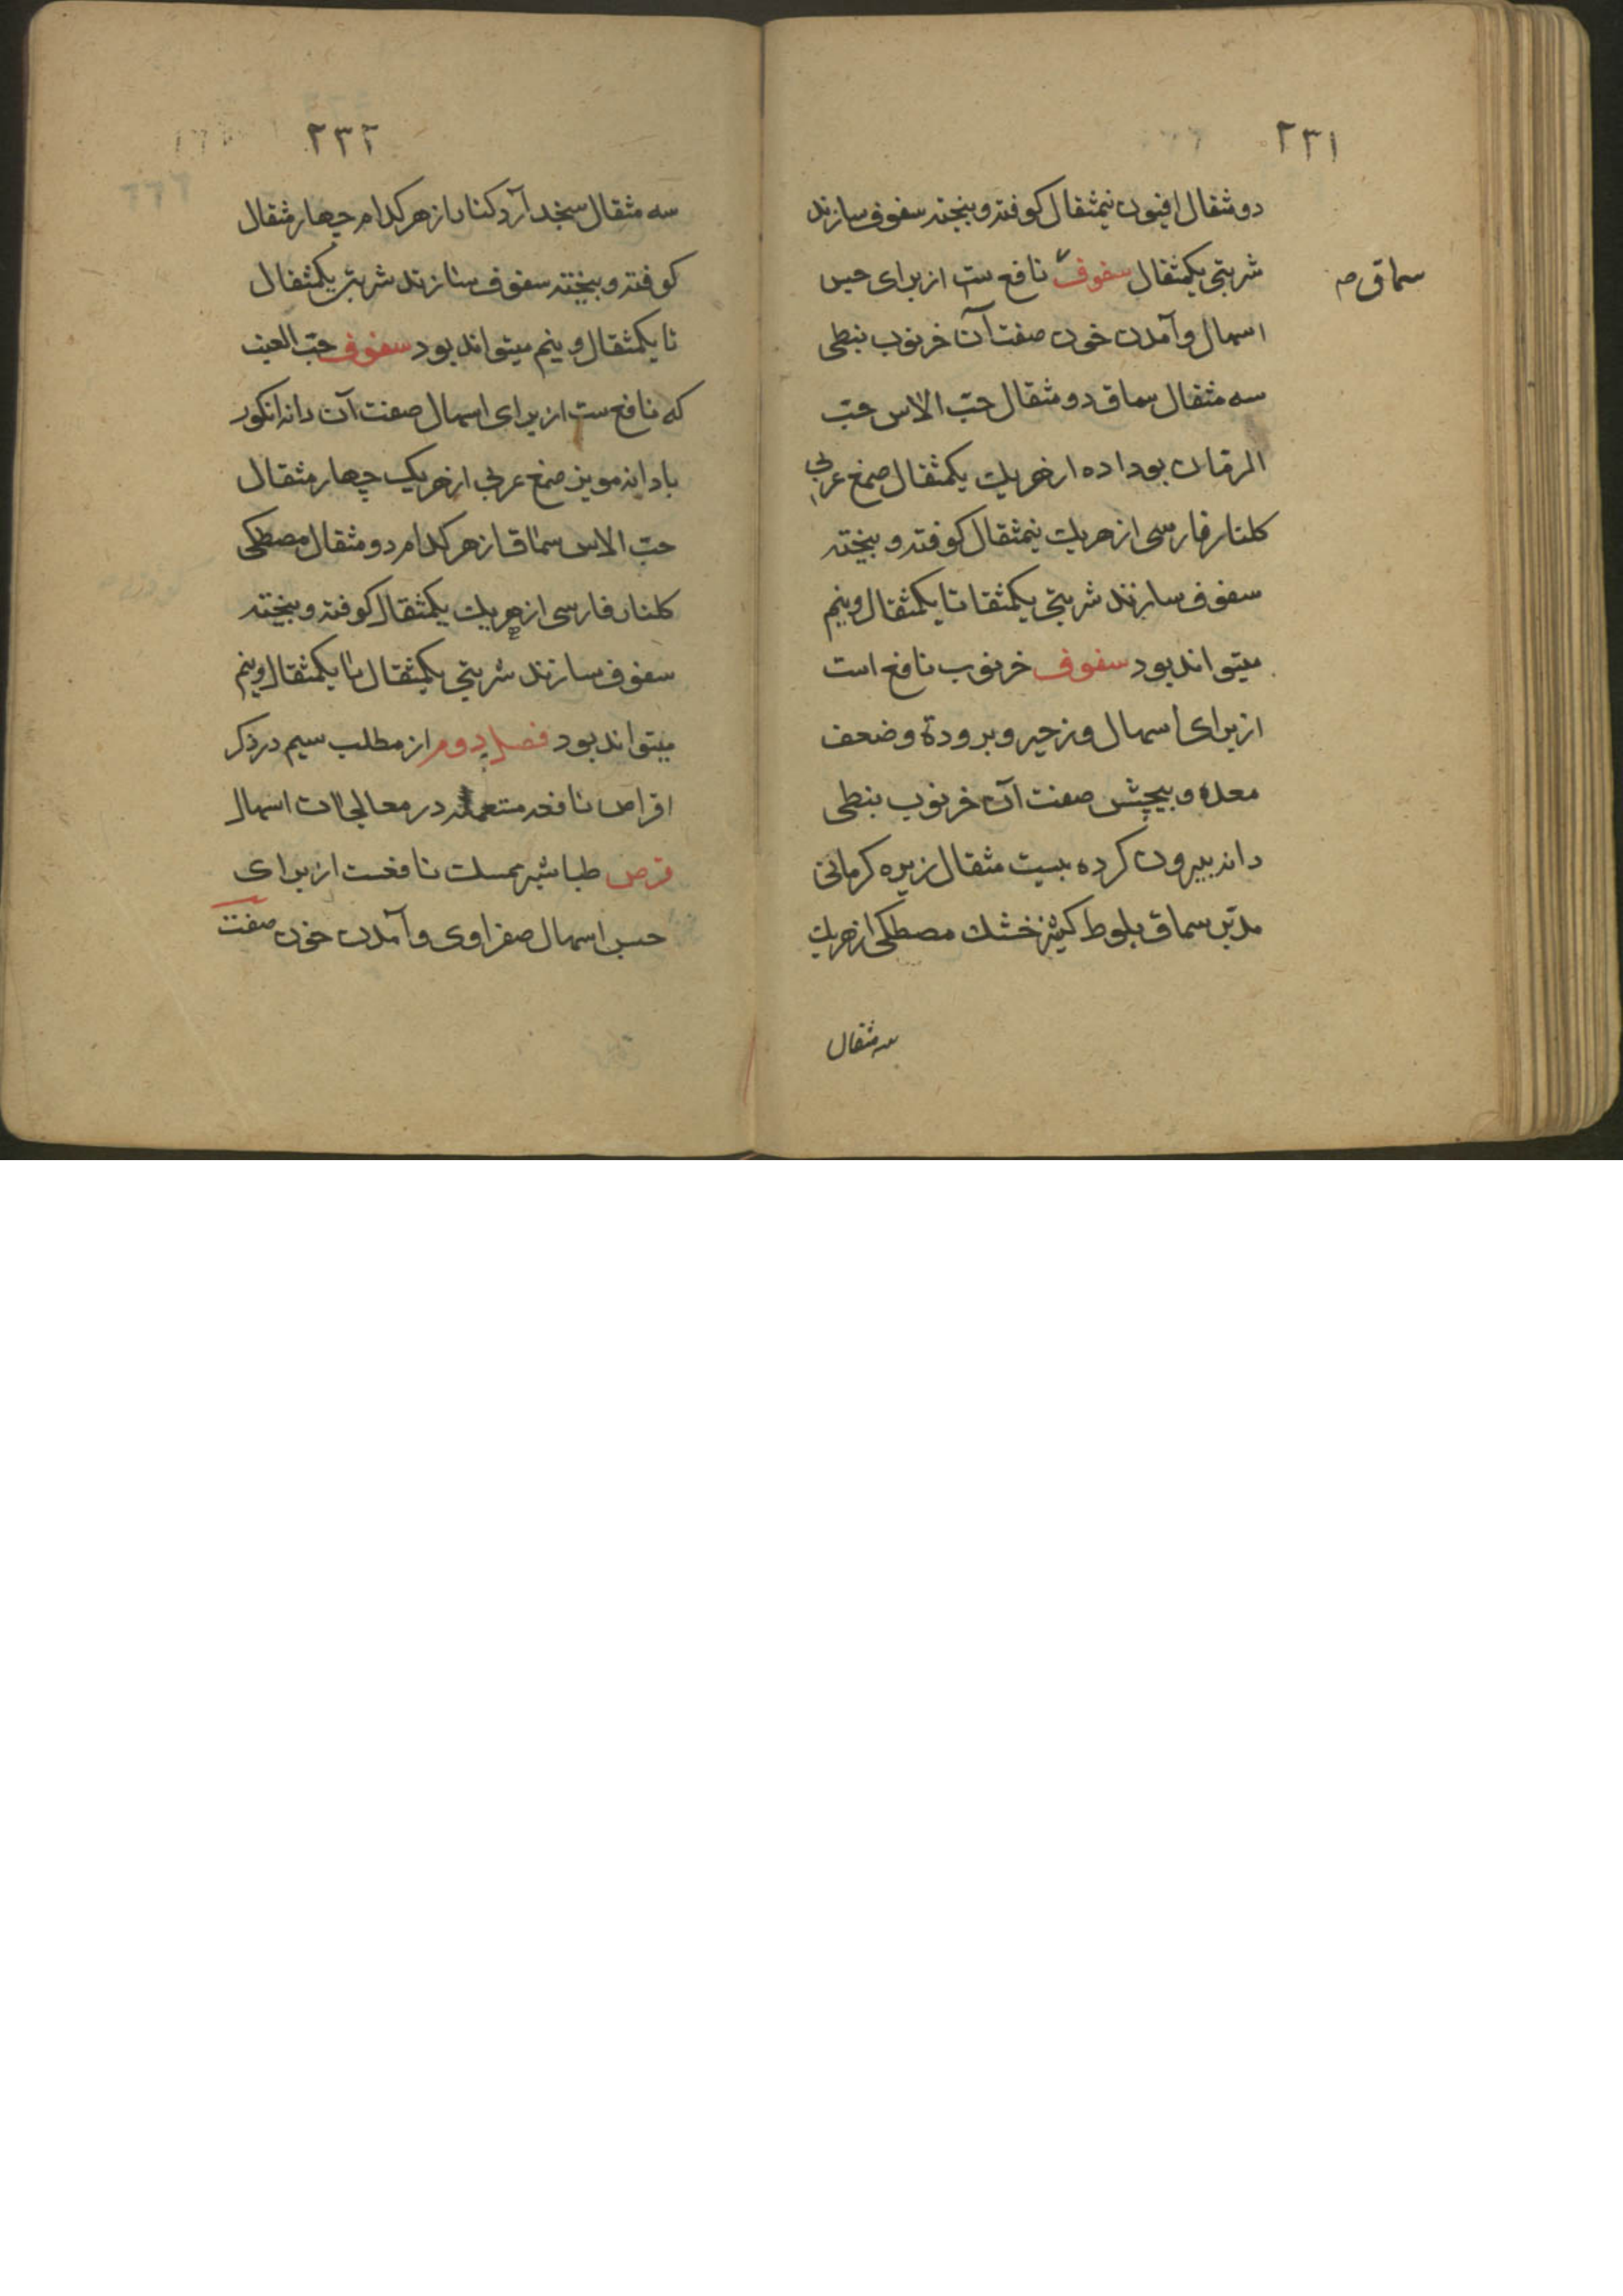 ٢٣١
دو مثقال افیون نیمثقال کوفته و بیخته سفوف سازند
شربتی یکمثقال سفوف نافع ست از برای حبس
سماق صه
اسهال و آمدن خون صفت آن خرنوب بنطی
سه مثقال سماق دو مثقال حبّ الاس حبّ
الرمان بوداده از هریک یکمثقال صمغ عربی
کلنار فارسی از هریک نیمثقال کوفته و بیخته
سفوف سازند شربتی یکمثقا تا یکمثقال و نیم
میتواند بود سفوف خرنوب نافع است
از برای اسهال و زحیر و برودة و ضعف
معده و پیچش صفت آن خرنوب بنطی
دانه بیرون کرده بیست مثقال زیره کرمانی
مدبّر سماق بلوط کشنیز خشک مصطکی از هریک
سه مثقال
٢٣٢
سه مثقال سنجد آرد کنار از هر کدام چهار مثقال
کوفته و بیخته سفوف سازند شربتی یکمثقال
تا یکمثقال و نیم میتواند بود سفوف حبّ العنب
که نافع ست از برای اسهال صفت آن دانه انکور
با دانه مویز صمغ عربی از هریک چهار مثقال
حبّ الاس سماق از هر کدام دو مثقال مصطکی
کلنار فارسی از هریک یکمثقال کوفته و بیخته
سفوف سازند شربتی یکمثقال تا یکمثقال و نیم
میتواند بود فصل دوم از مطلب سیم در ذکر
اقراص نافعه مستعمله در معالجات اسهال
قرص طباشیر ممسک نافعست از برای
حبس اسهال صفراوی و آمدن خون صفت